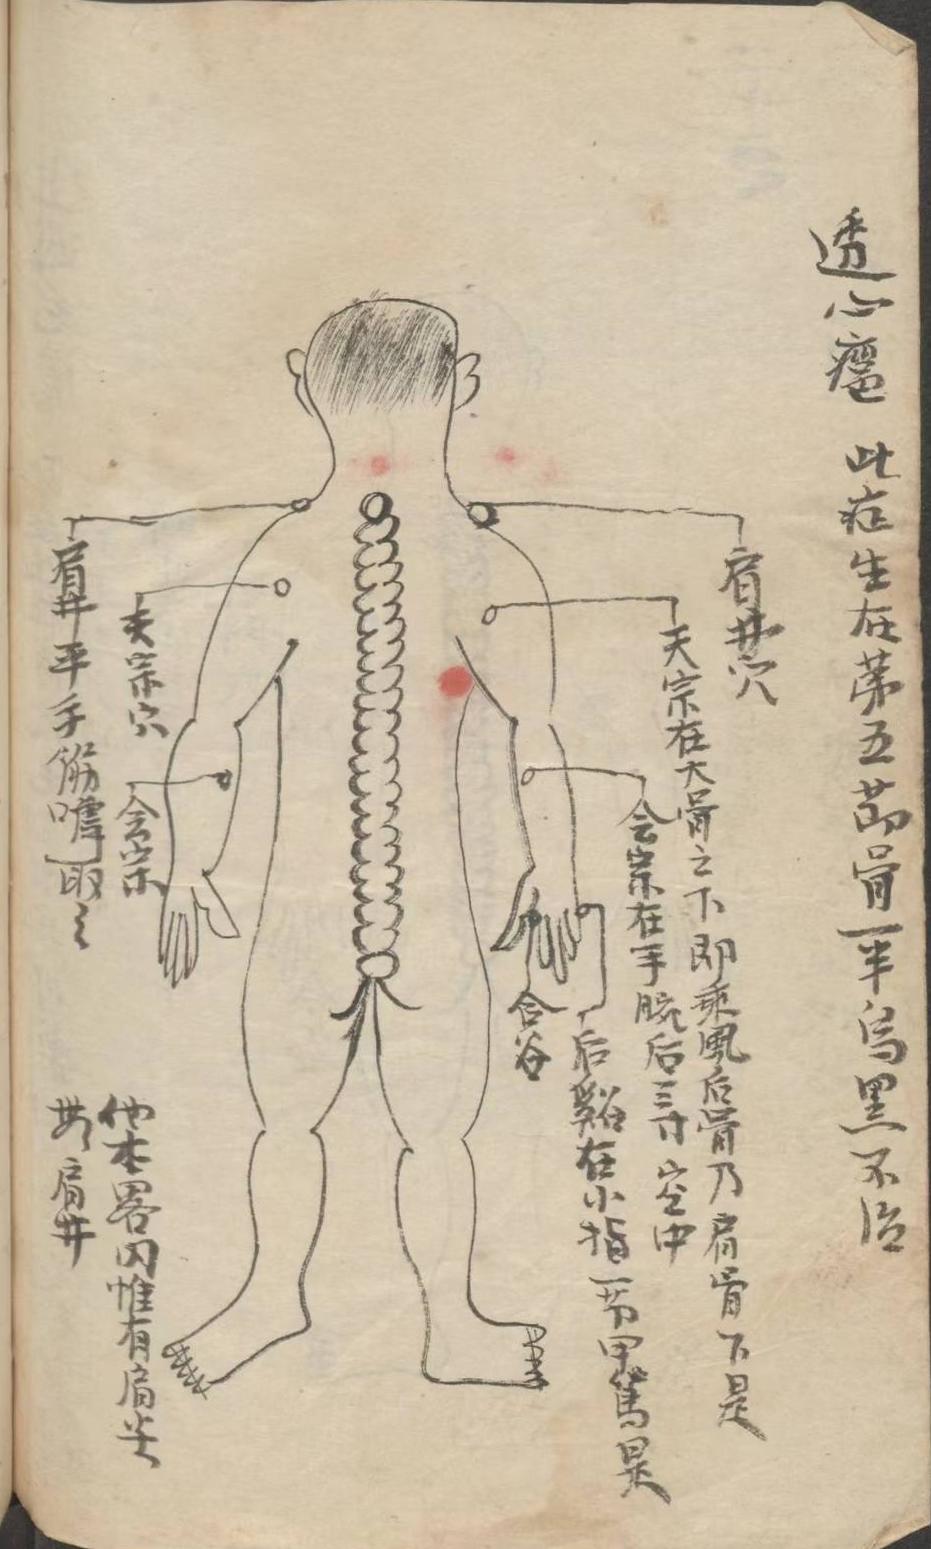 透心瘟 此症生在第五節骨一半烏黑不治
肩井穴
天宗在大骨之下即乘風后骨乃肩骨下是
会宗在手腕后三寸空中
后谿在小指一节甲篤是
合谷
夫宗穴
会宗
肩井平手筋嚕取之
他本畧囚惟有肩尖
肩井